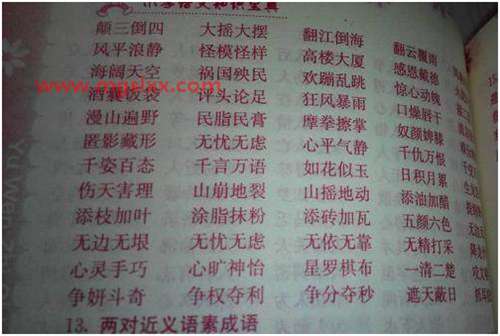 小学语文知识宝典
颠三倒四 大摇大摆 翻江倒海 翻云覆雨
风平浪静 怪模怪样 高楼大厦 感恩戴德
海阔天空 祸国殃民 欢蹦乱跳 惊心动魄
www.mgelixx.com
酒囊饭袋 评头论足 狂风暴雨 口燥唇干
漫山遍野 民脂民膏 摩拳擦掌 奴颜婢膝
匿影藏形 无忧无虑 心平气静 千仇万恨
千姿百态 千言万语 如花似玉 日积月累
伤天害理 山崩地裂 山摇地动 添油加醋
添枝加叶 涂脂抹粉 添砖加瓦 五颜六色
无边无垠 无忧无虑 无依无靠 无精打采
心灵手巧 心旷神怡 星罗棋布 一清二楚
争妍斗奇 争权夺利 争分夺秒 遮天蔽日
13. 两对近义语素成语